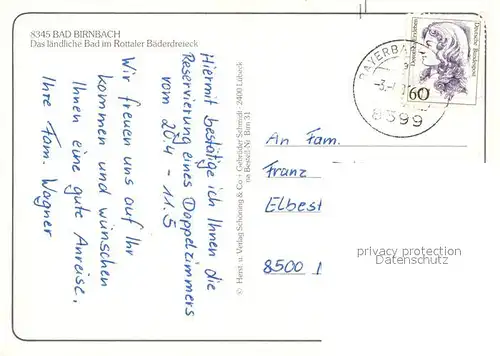 8345 BAD BIRNBACH
Das ländliche Bad im Rottaler Bäderdreieck
Hiermit bestätige ich Ihnen die
Reservierung eines Doppelzimmers
vom 20.4 - 11.5
Wir freuen uns auf Ihr
kommen und wünschen
Ihnen eine gute Anreise.
Ihre Fam. Wagner
© Herst. u. Verlag Schöning & Co · Gebrüder Schmidt · 2400 Lübeck
Bestell-Nr. Birn 31
60
Deutsche Bundespost
BAYERBA
8399
An Fam.
Franz
Elbest
8500
privacy protection
Datenschutz